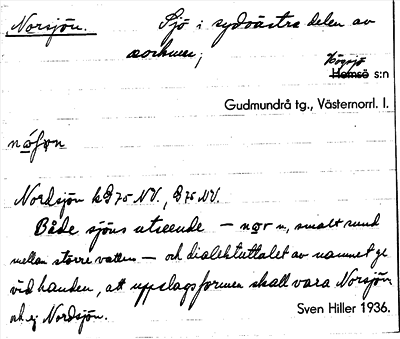 Norsjön. Sjö i sydöstra delen av
socknen;
Högsjö
Hemsö s:n
Gudmundrå tg., Västernorrl. l.
Nordsjön k D 75 NV., D 75 NV.
Både sjöns utseende – nor n, smalt sund
mellan större vatten – och dialektuttalet av namnet ge
vid handen, att uppslagsformen skall vara Norsjön
och ej Nordsjön.
Sven Hiller 1936.